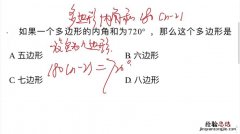 多边形内角和 180(n-2)
如果一个多边形的内角和为720°，那么这个多边形是
180(n-2)=720°
A 五边形 B 六边形
C 七边形 D 八边形
经验总结